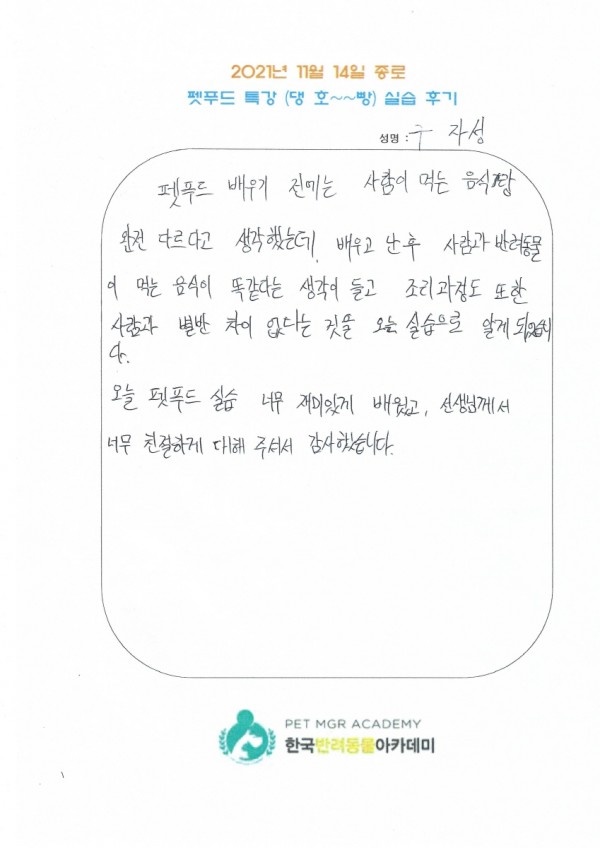 2021년 11월 14일 종로
펫푸드 특강 (댕 호~~빵) 실습 후기
성명 : 구 자성
펫푸드 배우기 전에는 사람이 먹는 음식이랑
완전 다르다고 생각했는데, 배우고 난 후 사람과 반려동물
이 먹는 음식이 똑같다는 생각이 들고 조리과정도 또한
사람과 별반 차이 없다는 것을 오늘 실습으로 알게 되었습니
다.
오늘 펫푸드 실습 너무 재미있게 배웠고, 선생님께서
너무 친절하게 대해 주셔서 감사했습니다.
PET MGR ACADEMY
한국반려동물아카데미